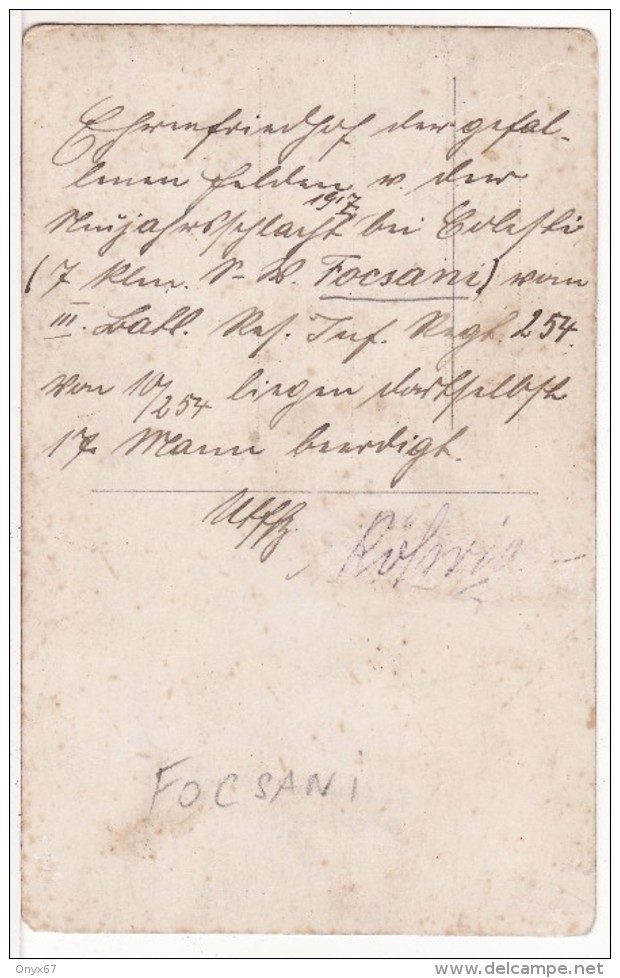 Ehrenfriedhof der gefal-
lenen Helden v. der
1917
Neujahrsschlacht bei Golesti
(7 klm. S-W. Focsani) vom
III. Batl. Res. Inf. Regt. 254.
Von 10/254 liegen dortselbst
17 Mann beerdigt.
Uffz
FOCSANI
Onyx67
delcampe.net